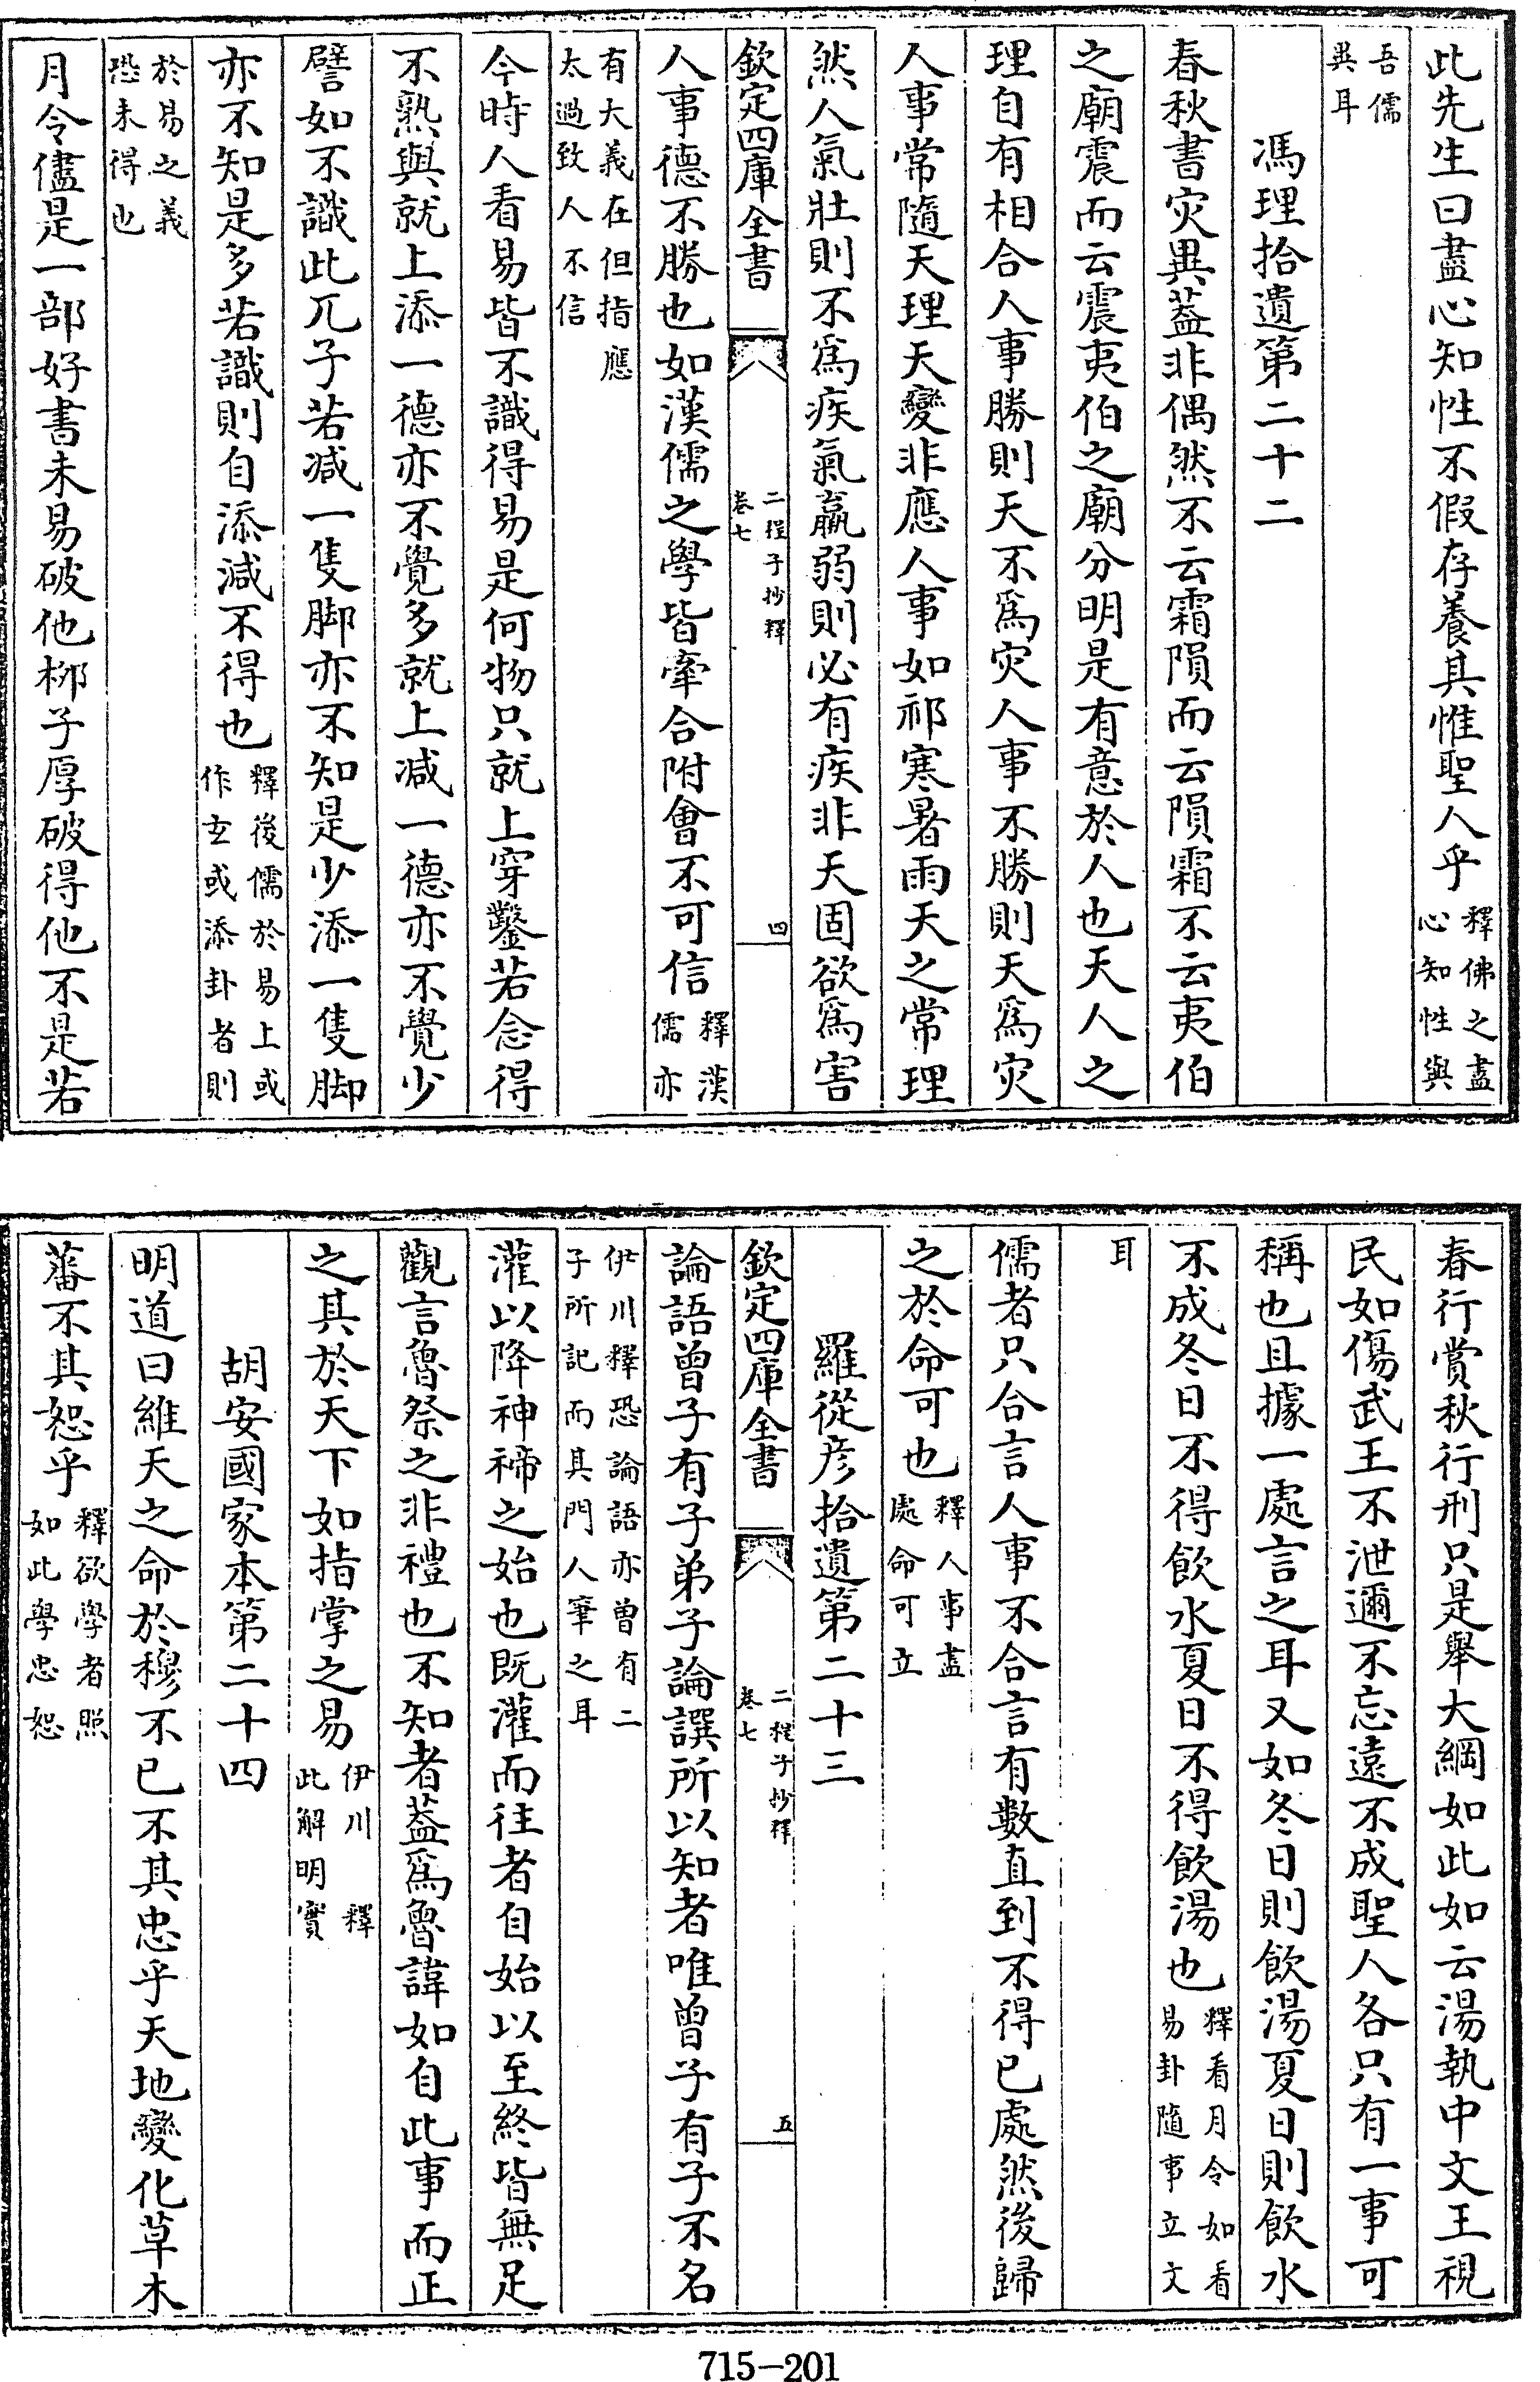 此先生曰盡心知性不假存養其惟聖人乎釋佛之盡心知性與
吾儒異耳
馮理拾遺第二十二
春秋書災異蓋非偶然不云霜隕而云隕霜不云夷伯
之廟震而云震夷伯之廟分明是有意於人也天人之
理自有相合人事勝則天不爲災人事不勝則天爲災
人事常隨天理天變非應人事如祁寒暑雨天之常理
然人氣壯則不爲疾氣羸弱則必有疾非天固欲爲害
欽定四庫全書 二程子抄釋 卷七 四
人事德不勝也如漢儒之學皆牽合附會不可信釋漢儒亦
有大義在但指應太過致人不信
今時人看易皆不識得易是何物只就上穿鑿若念得
不熟與就上添一德亦不覺多就上減一德亦不覺少
譬如不識此兀子若減一隻脚亦不知是少添一隻脚
亦不知是多若識則自添減不得也釋後儒於易上或作玄或添卦者則
於易之義恐未得也
月令儘是一部好書未易破他柳子厚破得他不是若
春行賞秋行刑只是舉大綱如此如云湯執中文王視
民如傷武王不泄邇不忘遠不成聖人各只有一事可
稱也且據一處言之耳又如冬日則飲湯夏日則飲水
不成冬日不得飲水夏日不得飲湯也釋看月令如看易卦隨事立文
耳
儒者只合言人事不合言有數直到不得已處然後歸
之於命可也釋人事盡處命可立
羅從彥拾遺第二十三
欽定四庫全書 二程子抄釋 卷七 五
論語曾子有子弟子論譔所以知者唯曾子有子不名
伊川釋恐論語亦曾有二子所記而其門人筆之耳
灌以降神禘之始也既灌而往者自始以至終皆無足
觀言魯祭之非禮也不知者蓋爲魯諱如自此事而正
之其於天下如指掌之易伊川釋此解明實
胡安國家本第二十四
明道曰維天之命於穆不已不其忠乎天地變化草木
蕃不其恕乎釋欲學者照如此學忠恕
715-201